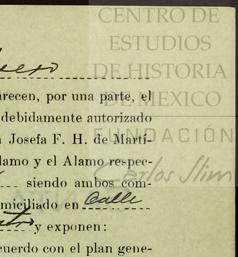 CENTRO DE
ESTUDIOS
DE HISTORIA
DE MEXICO
FUNDACIÓN
Carlos Slim
arecen, por una parte, el
debidamente autorizado
Josefa F. H. de Martí-
lamo y el Alamo respec-
siendo ambos com-
miciliado en Calle
y exponen:
cuerdo con el plan gene-